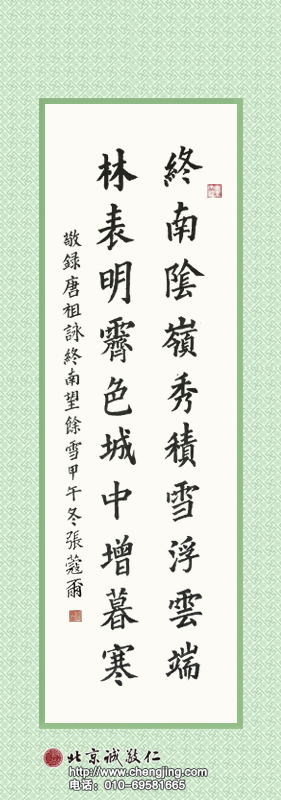 終南隂嶺秀積雪浮雲端
林表明霽色城中增暮寒
敬録唐祖詠終南望餘雪甲午冬張蔻爾
北京诚敬仁
http://www.chengjing.com
电话：010-69581665